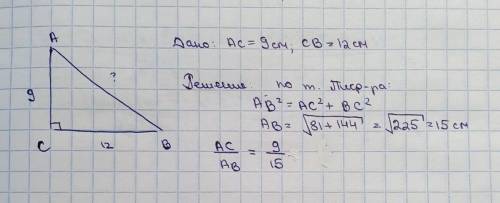 A
?
9
C
12
B
Дано: AC = 9 см, CB = 12 см
Решение по т. Пиф-ра:
AB² = AC² + BC²
AB = √81 + 144 = √225 = 15 см
AC/AB = 9/15